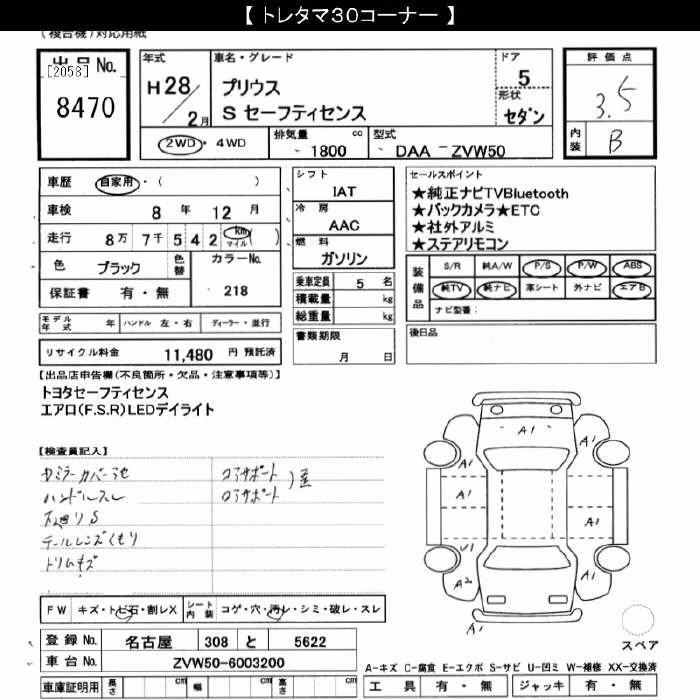 【 トレタマ30コーナー 】
(複合機)対応用紙
出品No.
[2058]
8470
年式
H28/2月
車名・グレード
プリウス
S セーフティセンス
ドア
5
形状
セダン
評価点
3.5
内装
B
2WD・4WD
排気量
1800 cc
型式
DAA - ZVW50
車歴 自家用・( )
車検 8 年 12 月
走行 8万 7千 5 4 2 km マイル ( )
色 ブラック 色替
カラーNo.
218
保証書 有・無
シフト
IAT
冷房
AAC
燃料
ガソリン
乗車定員 5 名
積載量 kg
総重量 kg
書類期限
月 日
セールスポイント
★純正ナビTVBluetooth
★バックカメラ★ETC
★社外アルミ
★ステアリモコン
装備品
S/R 純A/W P/S P/W ABS
純TV 純ナビ 革シート 外ナビ エアB
ナビ型番:
後日品
モデル年式 年 ハンドル 左・右 ディーラー・並行
リサイクル料金 11,480 円 預託済
【出品店申告欄(不良箇所・欠品・注意事項等)】
トヨタセーフティセンス
エアロ(F.S.R)LEDデイライト
【検査員記入】
ハンドルスレ
テールレンズくもり
トリムキズ
コアサポート
コアサポート
A1
A1
A1
A1
A1
A1
U1
A2
A1
A1
FW キズ・トビ石・割レX シート内装 コゲ・穴・汚レ・シミ・破レ・スレ
スペア
登録No. 名古屋 308 と 5622
車台No. ZVW50-6003200
A-キズ C-腐食 E-エクボ S-サビ U-凹ミ W-補修 XX-交換済
車庫証明用 長さ cm 幅 cm 高さ cm
工具 有・無 ジャッキ 有・無